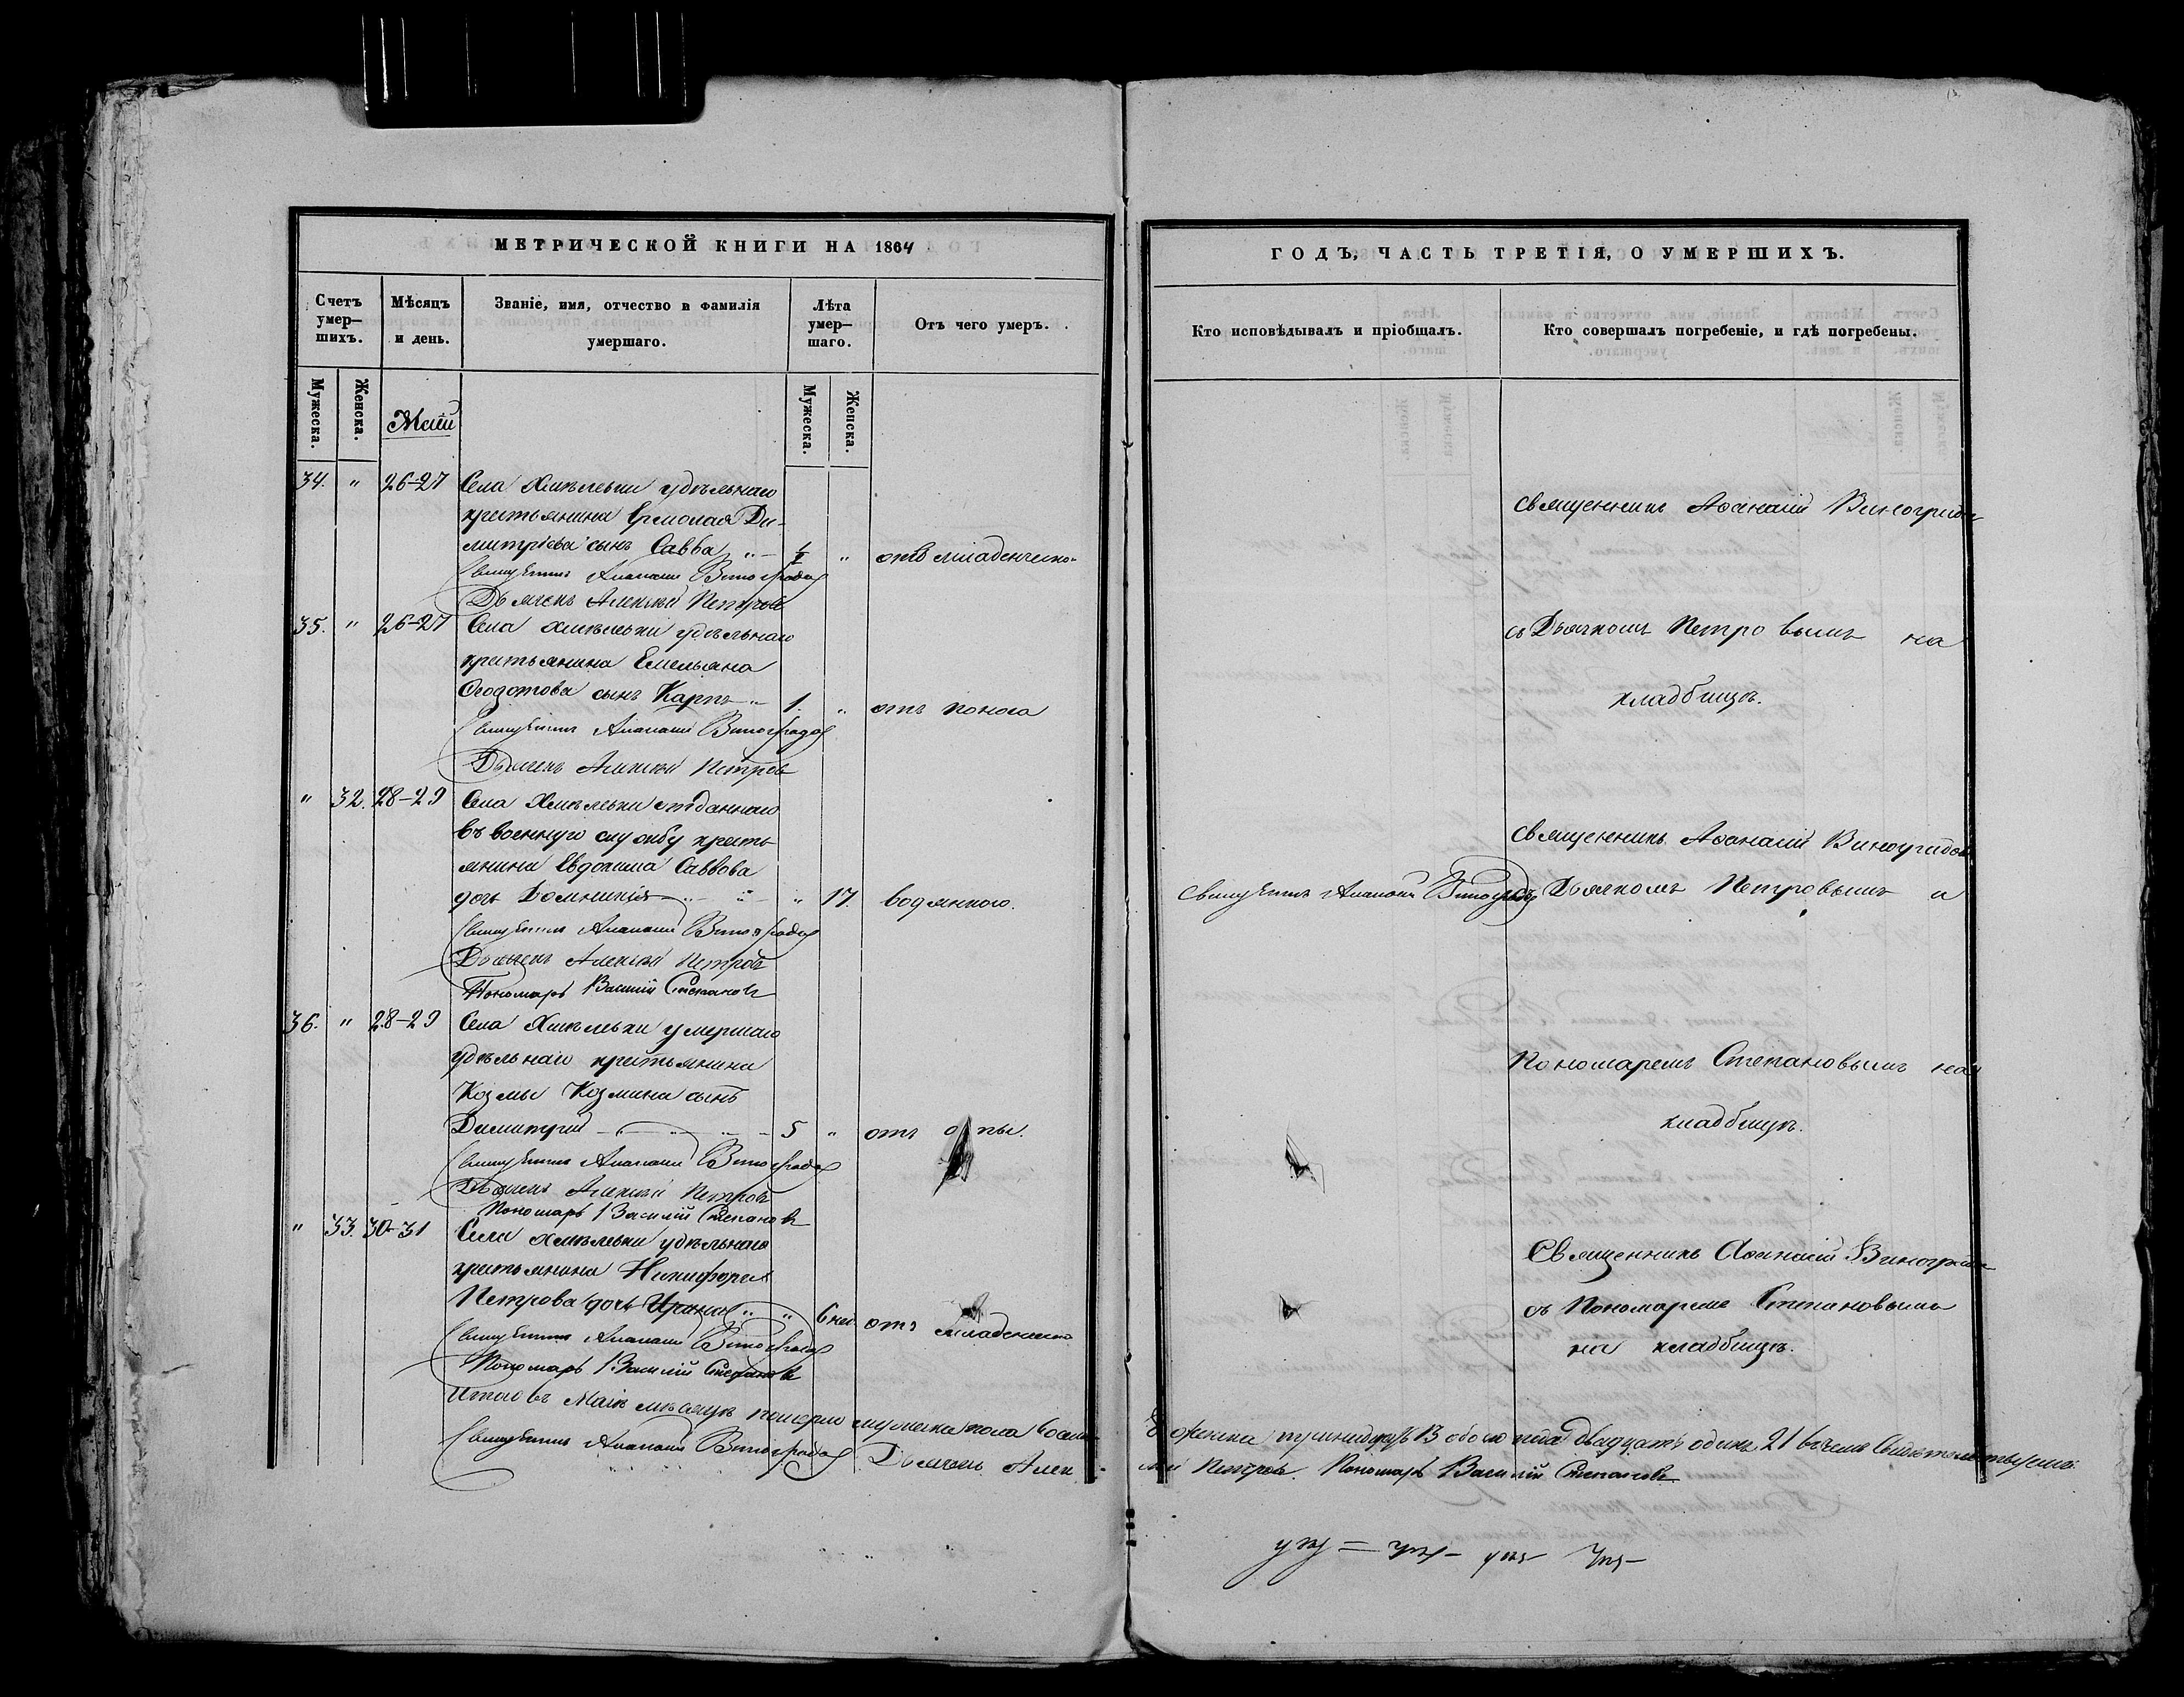 МЕТРИЧЕСКОЙ КНИГИ НА 1864
Счетъ умер-шихъ.
Мѣсяцъ и день.
Званіе, имя, отчество и фамилія умершаго.
Лѣта умер-шаго.
Отъ чего умеръ.
Мужеска.
Женска.
Май
Мужеска.
Женска.
34. " 26-27 Села Хмѣлевки удѣльнаго
крестьянина Ермолая Ди-
митріева сынъ Савва " " отъ младенческо-
Священникъ Аѳанасій Виноградов
Дьячекъ Алексѣй Петровъ
35. " 26-27 Села Хмѣлевки удѣльнаго
крестьянина Емельяна
Ѳеодотова сынъ Карпъ " 1. " отъ поноса
Священникъ Аѳанасій Виноградов
Дьячекъ Алексѣй Петровъ
" 32. 28-29 Села Хмѣлевки отданнаго
въ военную службу кресть
янина Евдокима Саввова
дочь Домникія " " 17. водянкою.
Священникъ Аѳанасій Виноградов
Дьячекъ Алексѣй Петровъ
Пономарь Василій Степановъ
36. " 28-29 Села Хмѣлевки умершаго
удѣльнаго крестьянина
Козмы Козмина сынъ
Димитрій 5 " отъ оспы.
Священникъ Аѳанасій Виноградов
Дьячекъ Алексѣй Петровъ
Пономарь Василій Степановъ
" 33. 30-31 Села Хмѣлевки удѣльнаго
крестьянина Никифора
Петрова дочь Ирина " " 6 нед. отъ младенческо
Священникъ Аѳанасій Виноградов
Пономарь Василій Степановъ
Итого въ Маіѣ мѣсяцѣ померло мужеска пола восемь
Священникъ Аѳанасій Виноградов Дьячекъ Алек-
ГОДЪ, ЧАСТЬ ТРЕТІЯ, О УМЕРШИХЪ.
Кто исповѣдывалъ и пріобщалъ.
Кто совершалъ погребеніе, и гдѣ погребены.
Священникъ Аѳанасій Виноградов
съ Дьячкомъ Петровымъ на
кладбищѣ.
Священникъ Аѳанасій Виноградов
Священникъ Аѳанасій Виноградов Дьячкомъ Петровымъ и
Пономаремъ Степановымъ на
кладбищѣ.
Священникъ Аѳанасій Виноградов
съ Пономаремъ Степановымъ
на кладбищѣ.
8 женска тринадцать 13 обоего пола двадцать одинъ 21 въ чемъ свидѣтельствуемъ:
сѣй Петровъ. Пономарь Василій Степановъ